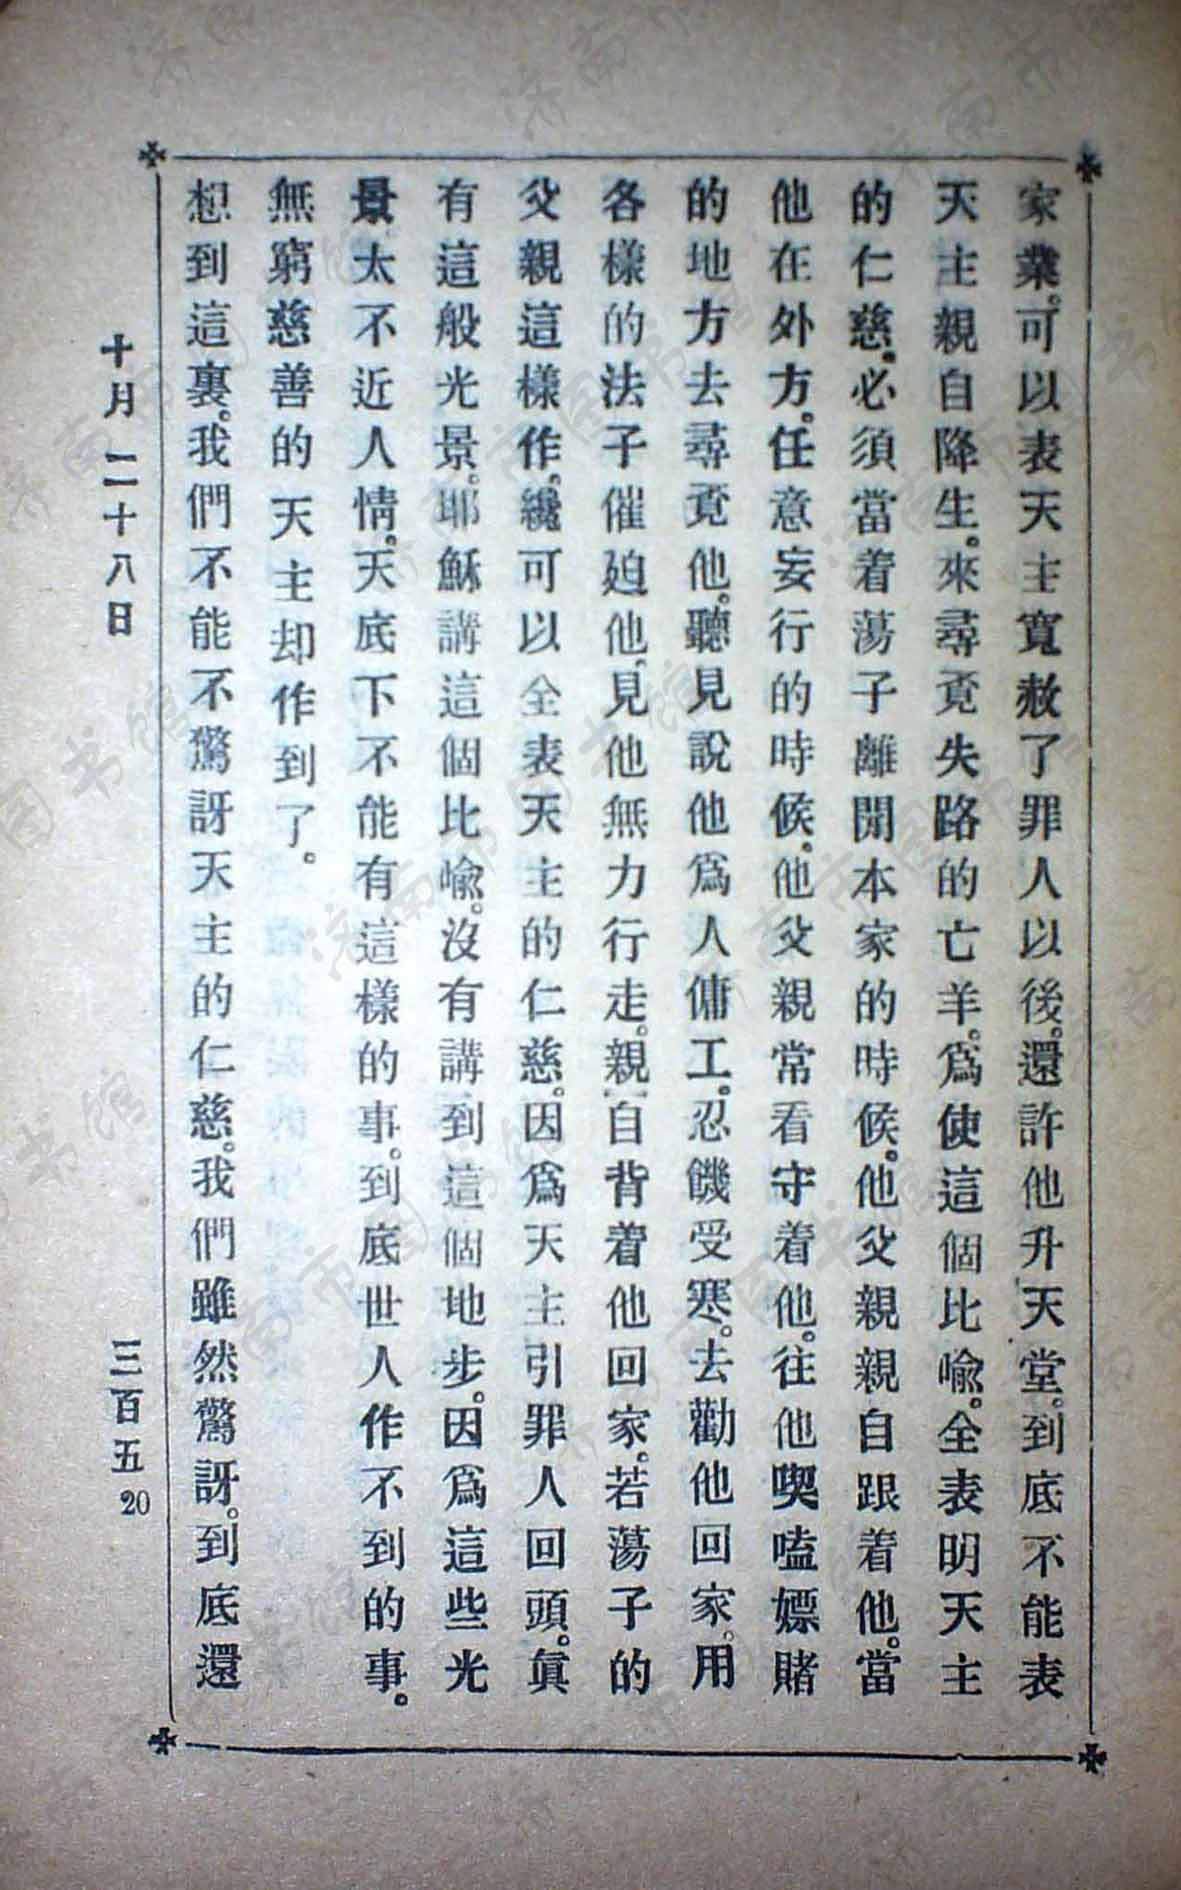 家業。可以表天主寬赦了罪人以後。還許他升天堂。到底不能表
天主親自降生。來尋覓失路的亡羊。爲使這個比喻。全表明天主
的仁慈。必須當着蕩子離開本家的時候。他父親親自跟着他。當
他在外方。任意妄行的時候。他父親常看守着他。往他喫嗑嫖賭
的地方去尋覓他。聽見說他爲人傭工。忍饑受寒。去勸他回家。用
各樣的法子催廹他。見他無力行走。親自背着他回家。若蕩子的
父親這樣作。纔可以全表天主的仁慈。因爲天主引罪人回頭。眞
有這般光景。耶穌講這個比喻。沒有講到這個地步。因爲這些光
景太不近人情。天底下不能有這樣的事。到底世人作不到的事。
無窮慈善的天主却作到了。
想到這裏。我們不能不驚訝天主的仁慈。我們雖然驚訝。到底還
十月二十八日
三百五
20
济南市图书馆